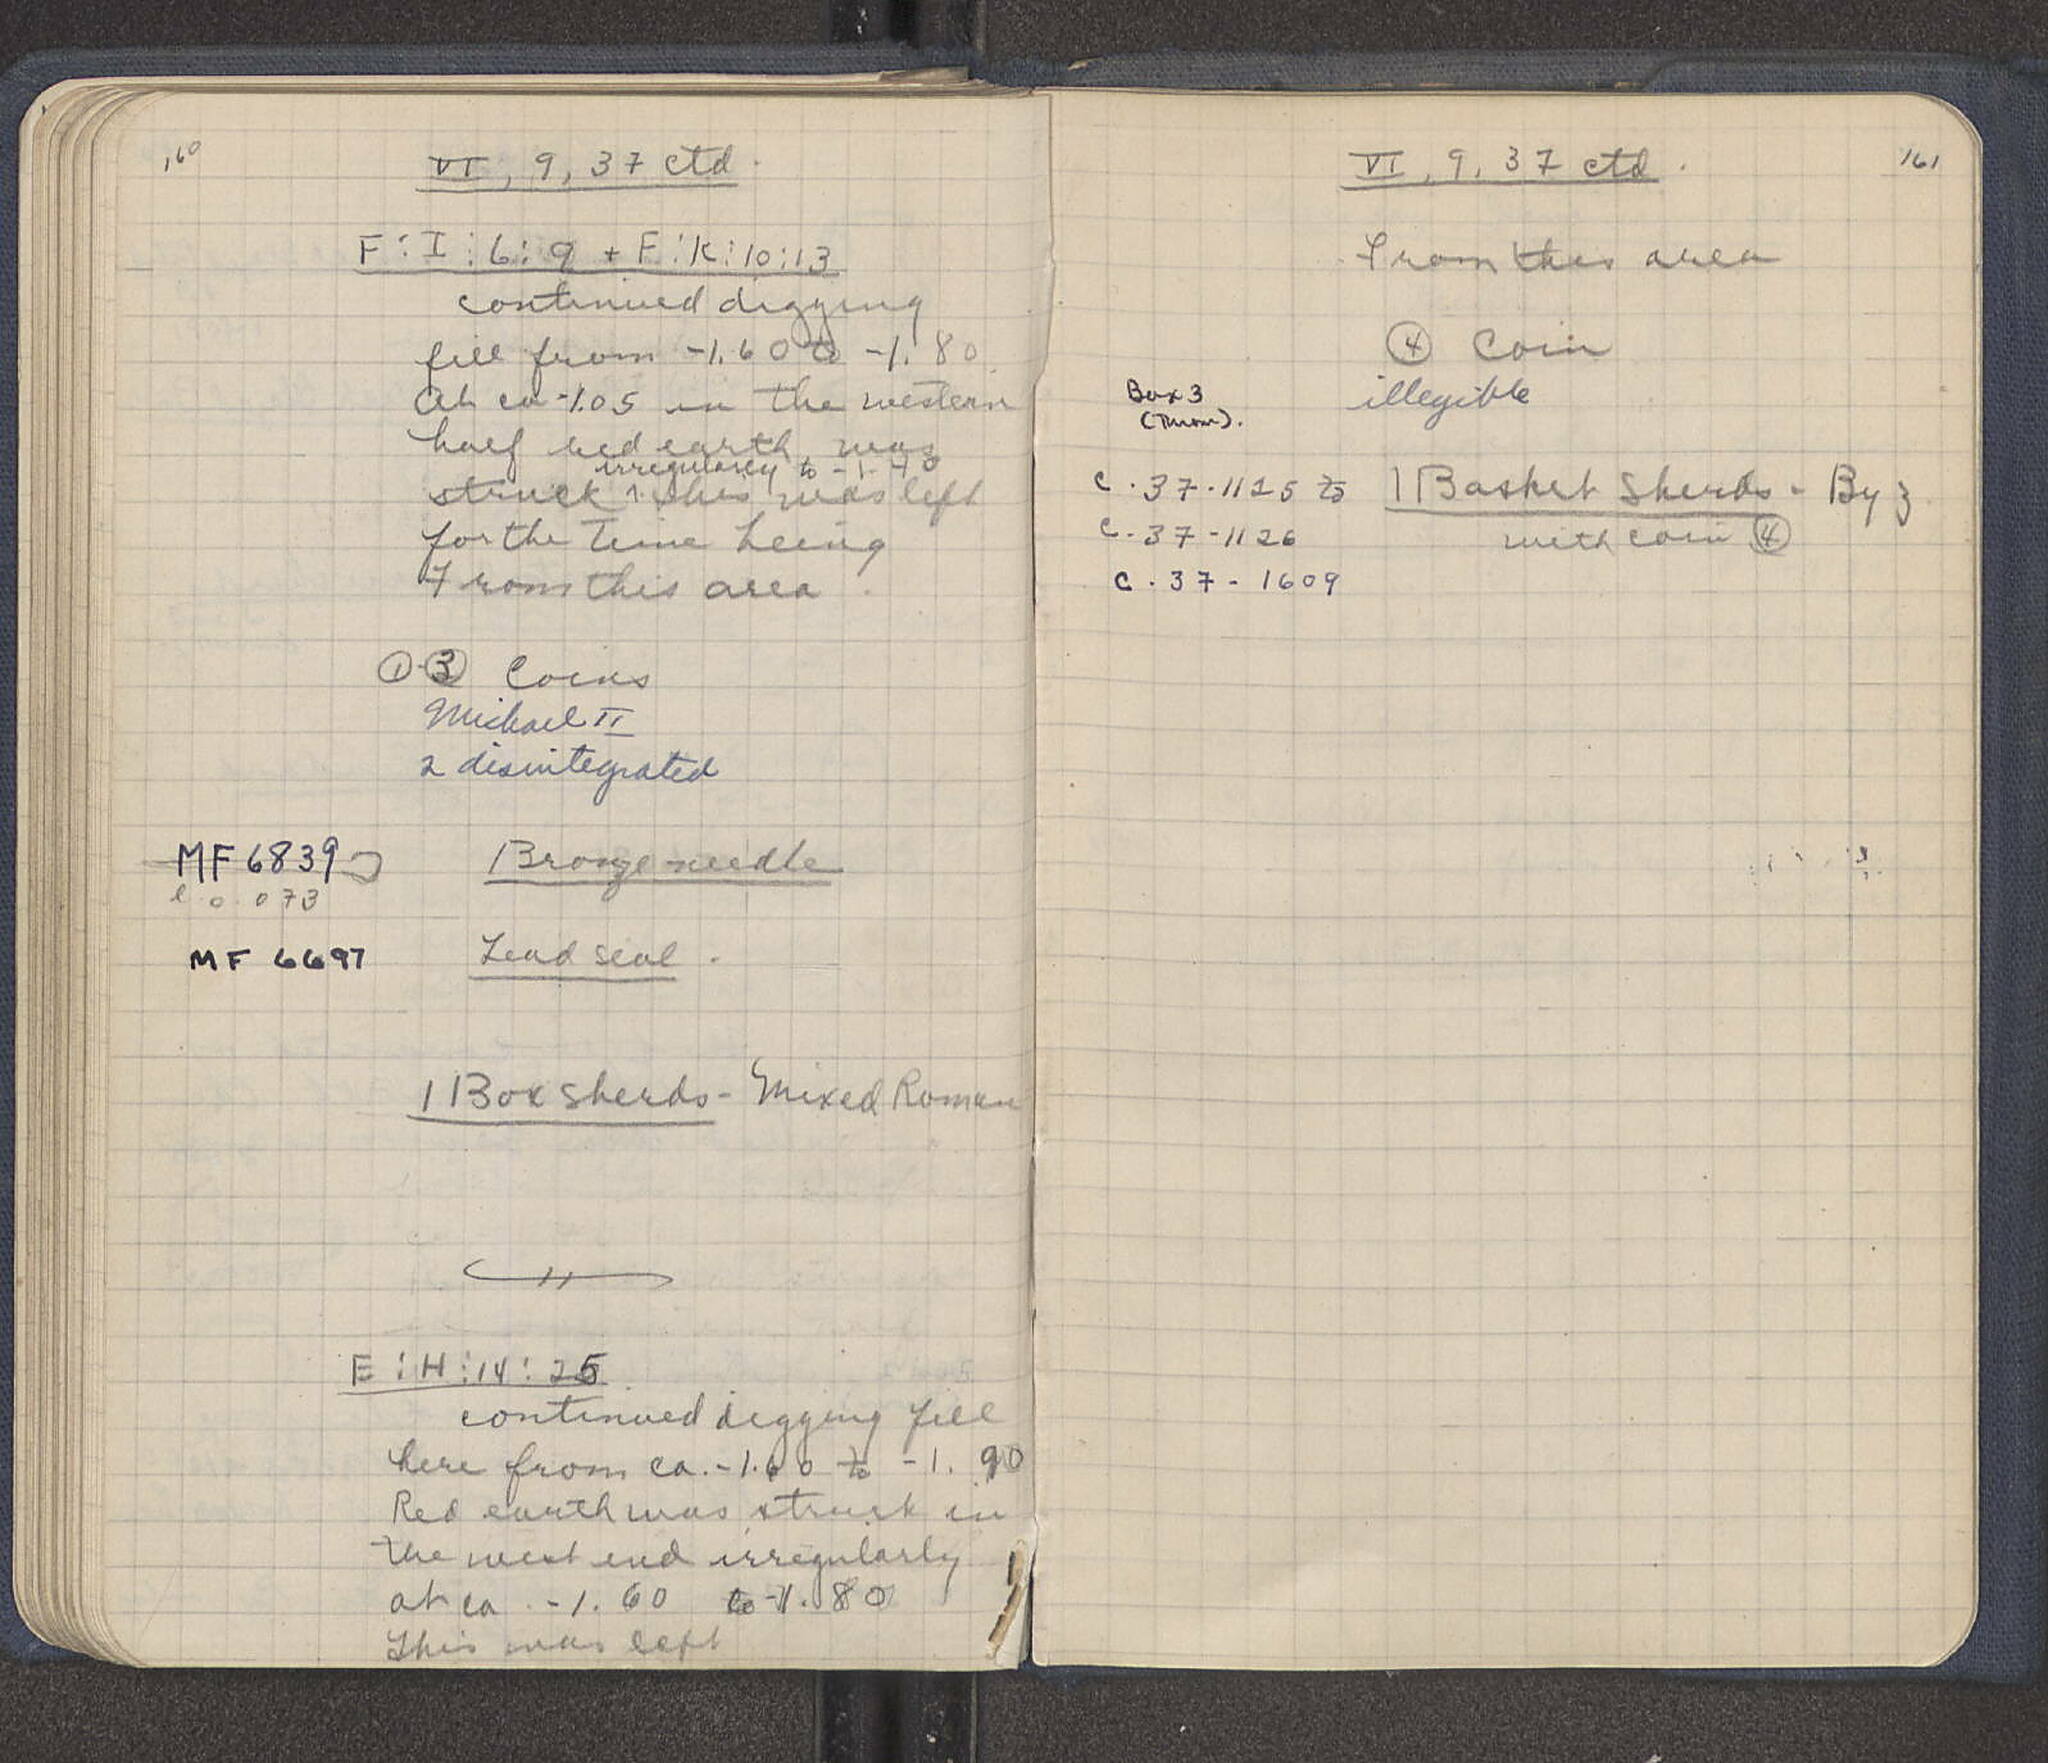 160
VI, 9, 37 ctd.
F:I:6:9 + F:K:10:13
continued digging
fill from -1.60 to -1.80
At ca -1.05 in the western
half red earth was
irregularly to -1.40
struck ^. this was left
for the time being
From this area.
① - ③ Coins
Michael II
2 disintegrated
MF 6839 Bronze needle
l 0.073
MF 6697 Lead seal.
1 Box sherds - Mixed Roman
E:H:14:25
continued digging fill
here from ca. -1.60 to -1.90
Red earth was struck in
the west end irregularly
at ca. -1.60 to -1.80
This was left
VI, 9, 37 ctd. 161
From this area
④ Coin
Box 3 illegible
(Throw).
C.37-1125 to 1 Basket Sherds - Byz
C.37-1126 with coin ④
C.37-1609